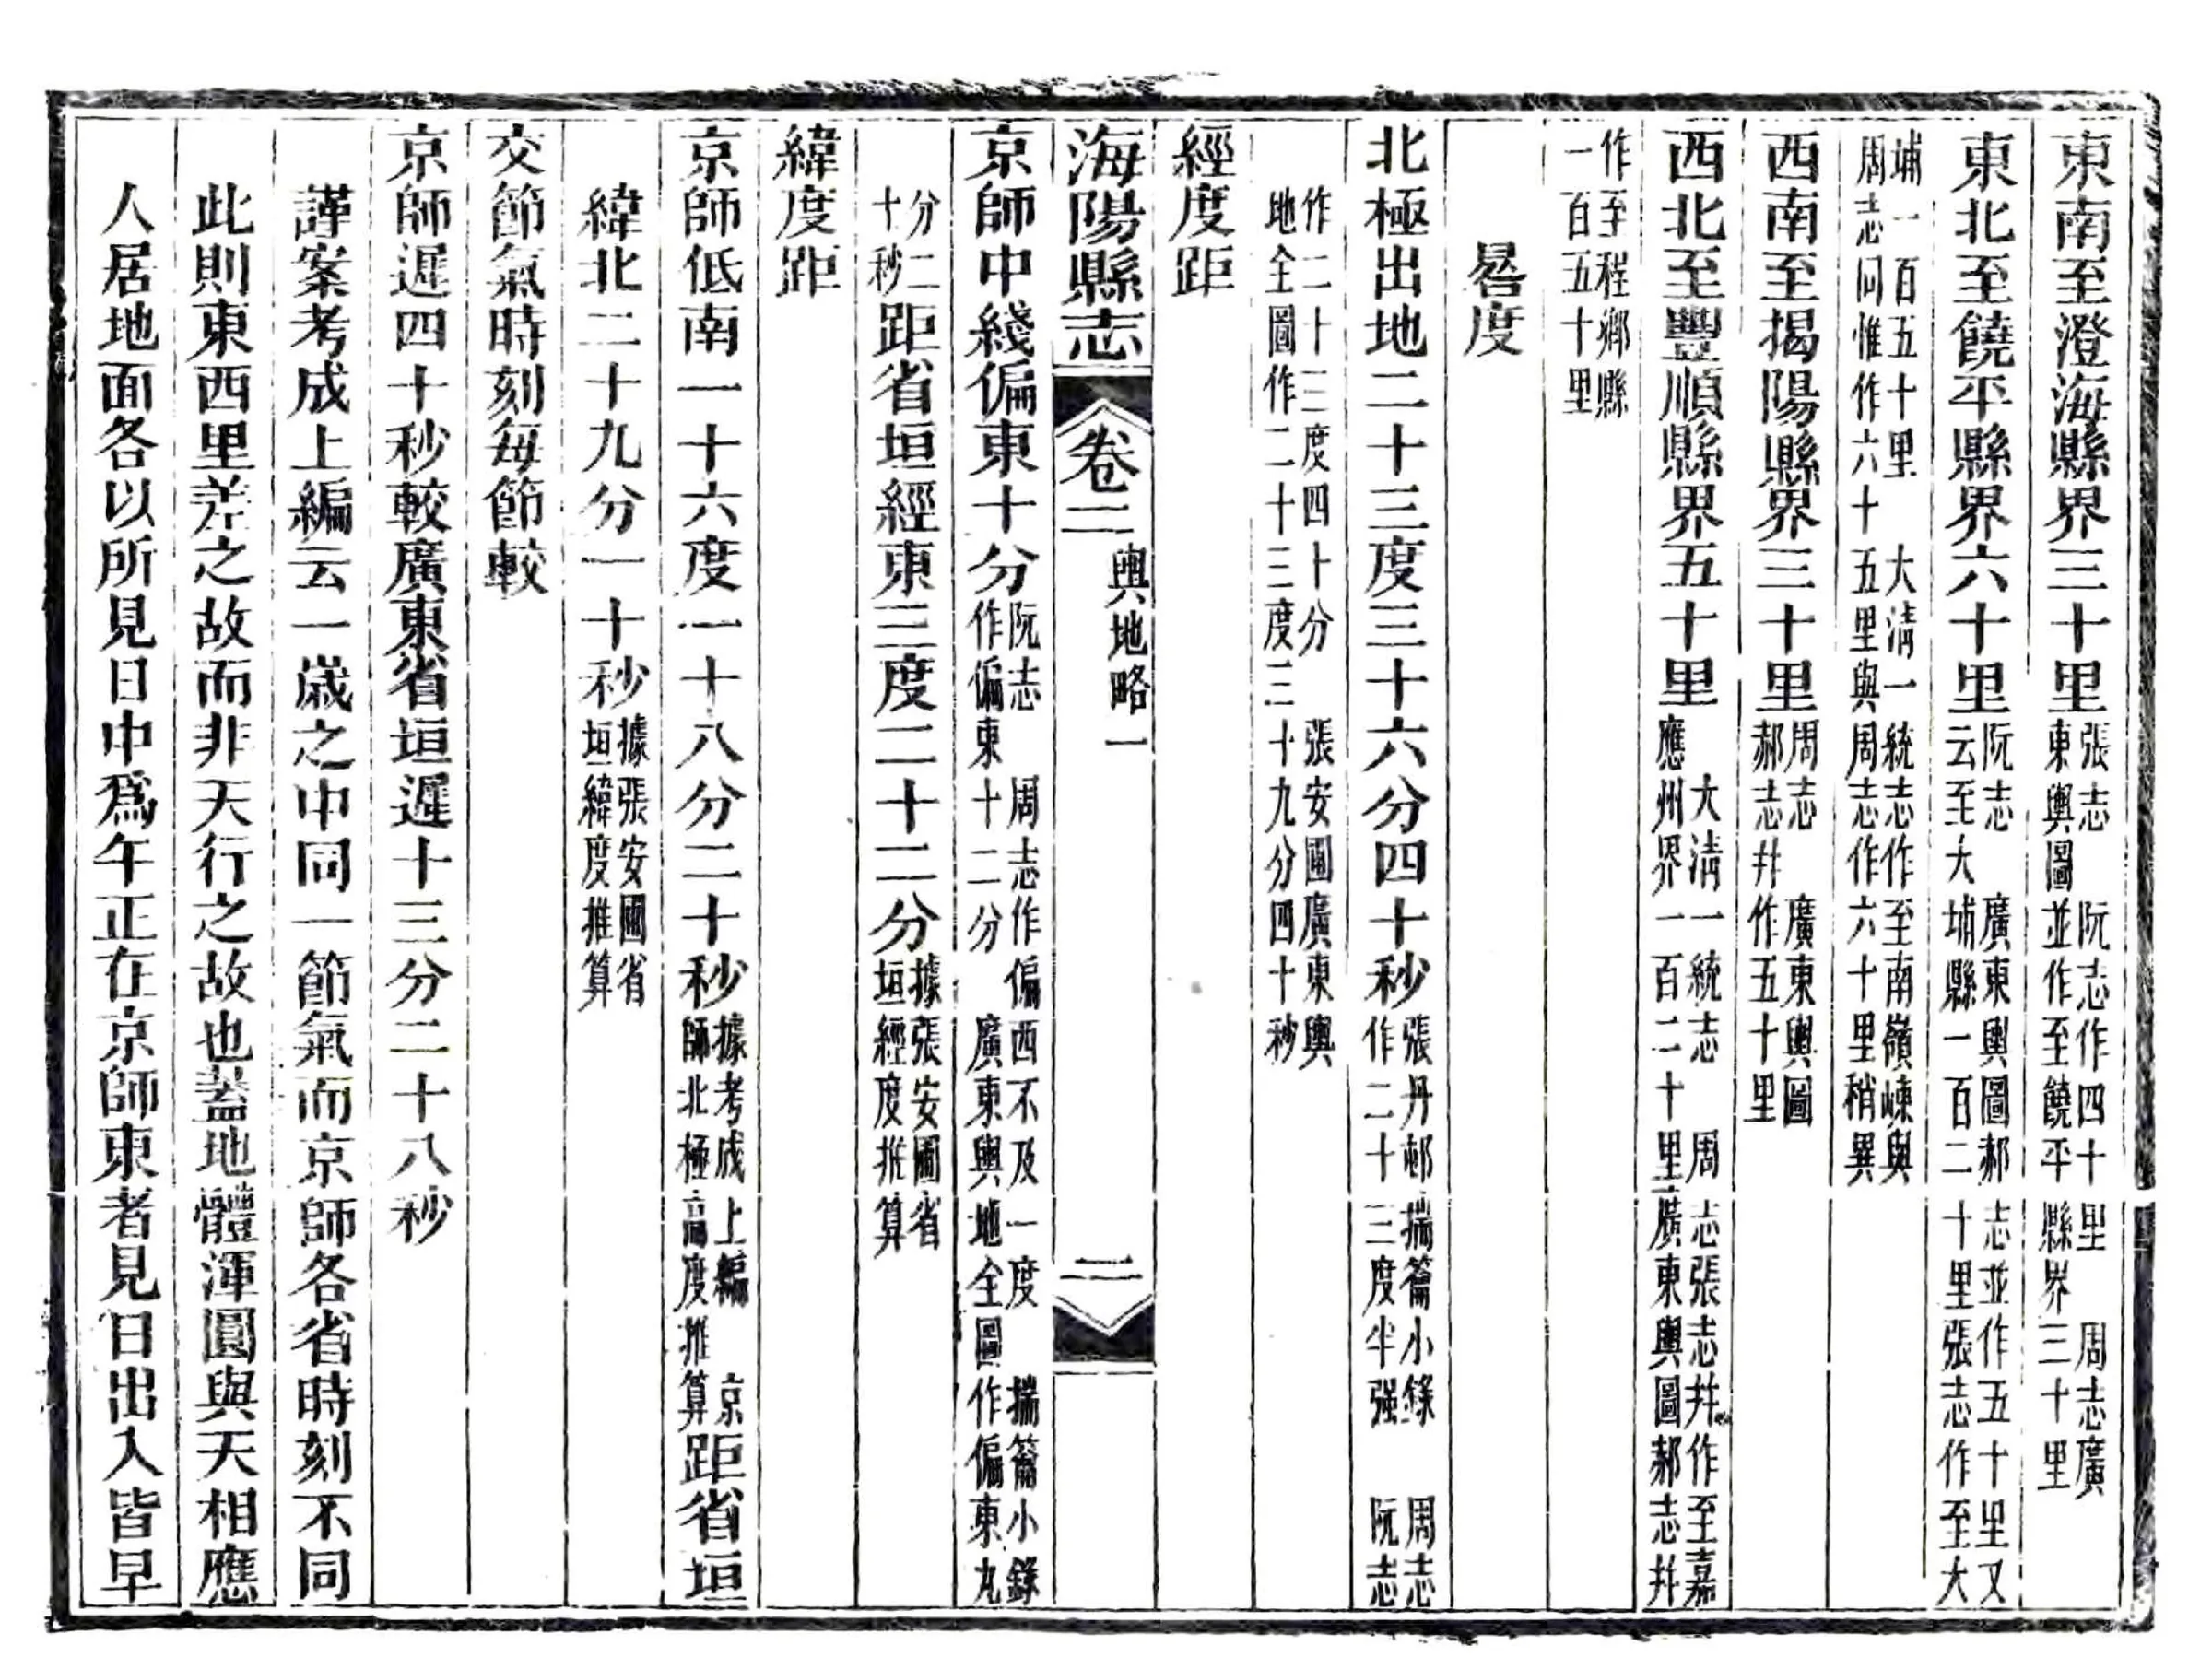 東南至澄海縣界三十里張志 阮志作四十里 周志廣東輿圖並作至饒平縣界三十里
東北至饒平縣界六十里阮志 廣東輿圖郝志並作五十里又云至大埔縣一百二十里張志作至大
埔一百五十里 大清一統志作至南嶺崠與周志同惟作六十五里與周志作六十里稍異
西南至揭陽縣界三十里周志 廣東輿圖郝志幷作五十里
西北至豐順縣界五十里 大清一統志 周志張志幷作至嘉應州界一百二十里廣東輿圖郝志幷
作至程鄉縣一百五十里
晷度
北極出地二十三度三十六分四十秒張丹邨揣籥小錄作二十三度半强 周志阮志
作二十三度四十分 張安圃廣東輿地全圖作二十三度三十九分四十秒
經度距
海陽縣志 卷二 輿地略一 二
京師中綫偏東十分阮志 周志作偏西不及一度 揣籥小錄作偏東十二分 廣東輿地全圖作偏東九
分二十秒距省垣經東三度二十二分據張安圃省垣經度推算
緯度距
京師低南一十六度一十八分二十秒據考成上編 京師北極高度推算距省垣
緯北二十九分一十秒據張安圃省垣緯度推算
交節氣時刻每節較
京師遲四十秒較廣東省垣遲十三分二十八秒
謹案考成上編云一歲之中同一節氣而京師各省時刻不同
此則東西里差之故而非天行之故也蓋地體渾圓與天相應
人居地面各以所見日中爲午正在京師東者見日出入皆早